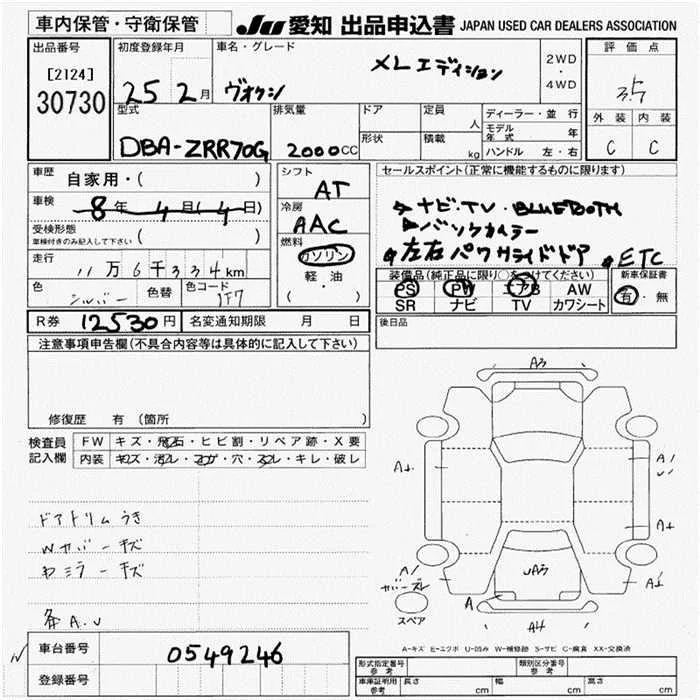 車内保管・守衛保管
JU 愛知 出品申込書 JAPAN USED CAR DEALERS ASSOCIATION
出品番号
[2124]
30730
初度登録年月
25 2月
車名・グレード
ヴォクシ XLエディション
2WD
・
4WD
評価点
3.5
外装 内装
C C
型式
DBA-ZRR70G
排気量
2000CC
ドア
形状
定員
人
積載
kg
ディーラー・並行
モデル年式 年
ハンドル 左・右
車歴 自家用・( )
車検 8年 4月(4日)
受検形態
車検付きのみ記入して下さい ( )
走行
11万6千334km
色 シルバー 色替 色コード 1F7
シフト
AT
冷房
AAC
燃料
ガソリン
・
軽・油
( ・ )
セールスポイント(正常に機能するものに限ります)
ナビ・TV・BLUETOOTH
バックカメラー
左右パワスライドドア
ETC
装備品(純正品に限り○をつけてください)
PS PW エアB AW
SR ナビ TV カワシート
新車保証書
有・無
R券 12530円
名変通知期限 月 日
後日品
注意事項申告欄(不具合内容等は具体的に記入して下さい)
修復歴 有 (箇所 )
検査員記入欄
FW キズ・飛石・ヒビ割・リペア跡・X要
内装 キズ・汚レ・コゲ・穴・スレ・キレ・破レ
ドアトリムうき
Wカバーキズ
ドミラーキズ
各A.U
A3
A1
A
A1
A1
カバーズレ
A
A4
スペア
A-キズ E-エクボ U-凹み W-補修跡 S-サビ C-腐食 XX-交換済
車台番号 0549246
登録番号
形式指定番号
参考
類別区分番号
参考
車庫証明用
参考
長さ cm
幅 cm
高さ cm